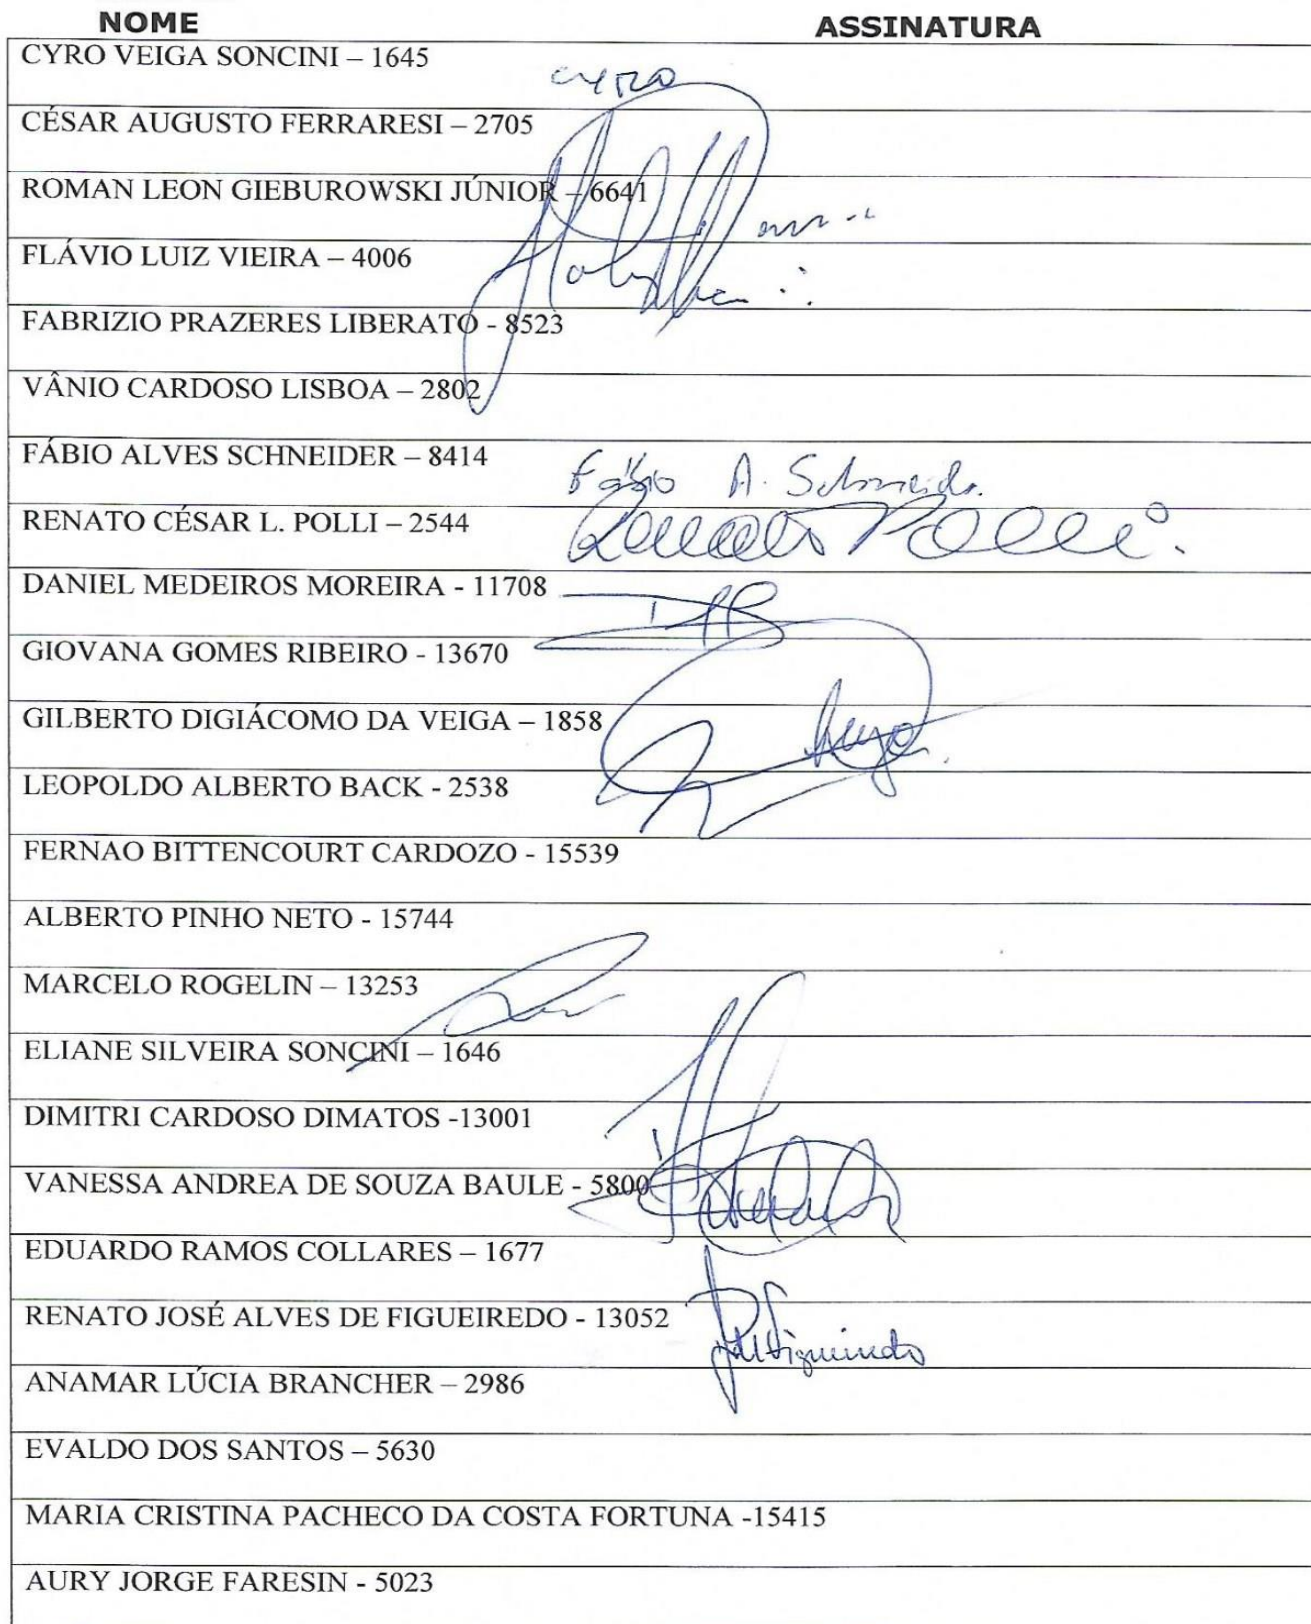 NOME ASSINATURA
CYRO VEIGA SONCINI – 1645
CYRO
CÉSAR AUGUSTO FERRARESI – 2705
ROMAN LEON GIEBUROWSKI JÚNIOR – 6641
FLÁVIO LUIZ VIEIRA – 4006
FABRIZIO PRAZERES LIBERATO - 8523
VÂNIO CARDOSO LISBOA – 2802
FÁBIO ALVES SCHNEIDER – 8414
Fábio A. Schneider
RENATO CÉSAR L. POLLI – 2544
Renato Polli
DANIEL MEDEIROS MOREIRA - 11708
GIOVANA GOMES RIBEIRO - 13670
GILBERTO DIGIÁCOMO DA VEIGA – 1858
LEOPOLDO ALBERTO BACK - 2538
FERNAO BITTENCOURT CARDOZO - 15539
ALBERTO PINHO NETO - 15744
MARCELO ROGELIN – 13253
ELIANE SILVEIRA SONCINI – 1646
DIMITRI CARDOSO DIMATOS -13001
VANESSA ANDREA DE SOUZA BAULE - 5800
EDUARDO RAMOS COLLARES – 1677
RENATO JOSÉ ALVES DE FIGUEIREDO - 13052
ANAMAR LÚCIA BRANCHER – 2986
EVALDO DOS SANTOS – 5630
MARIA CRISTINA PACHECO DA COSTA FORTUNA -15415
AURY JORGE FARESIN - 5023